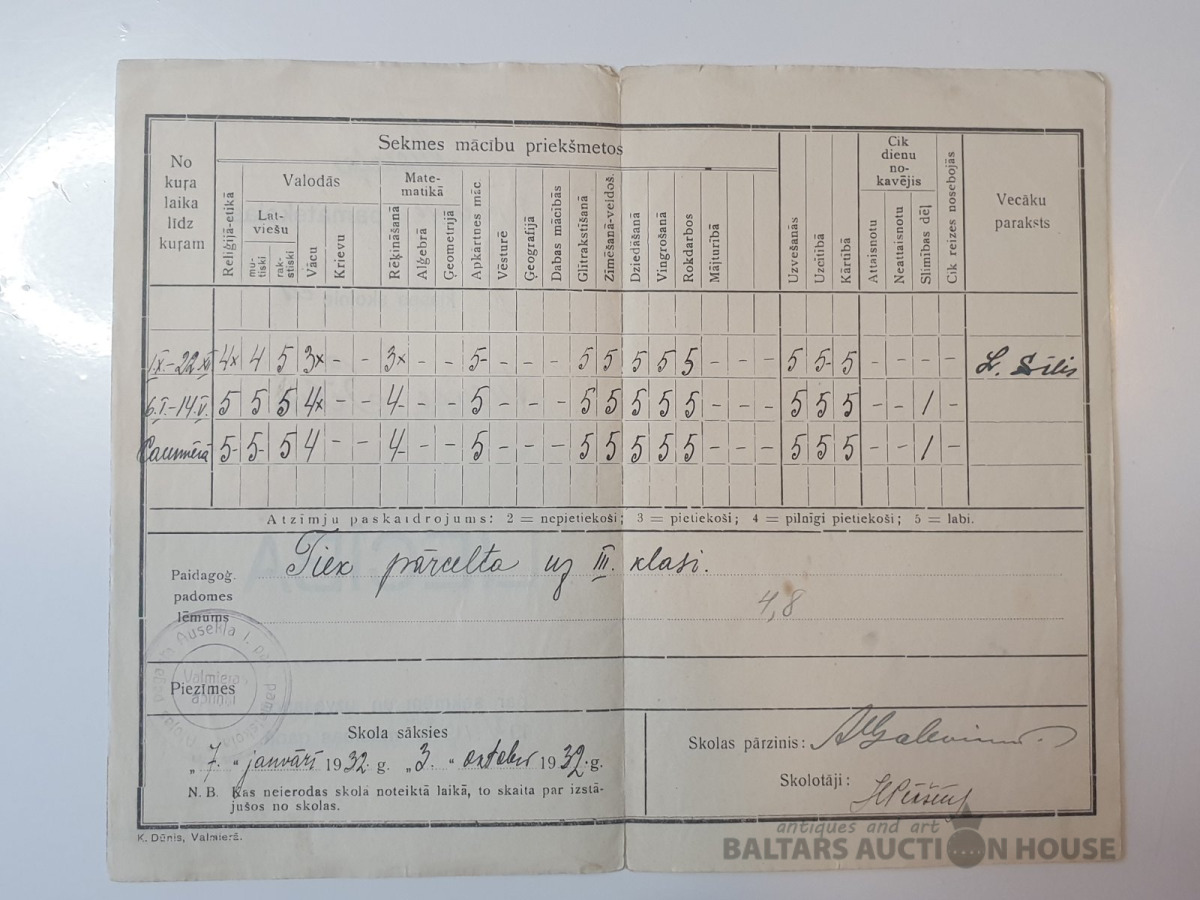 No
kuŗa
laika
līdz
kuŗam
Sekmes mācību priekšmetos
Reliģijā-ētikā
Valodās
Lat-
viešu
mu-
tiski
rak-
stiski
Vācu
Krievu
Mate-
matikā
Rēķināšanā
Alģebrā
Ģeometrijā
Apkārtnes māc.
Vēsturē
Ģeografijā
Dabas mācībās
Glītrakstīšanā
Zīmēšanā-veidoš.
Dziedāšanā
Vingrošanā
Rokdarbos
Mājturībā
Uzvešanās
Uzcītībā
Kārtībā
Cik
dienu
no-
kavējis
Attaisnotu
Neattaisnotu
Slimības dēļ
Cik reizes nosebojās
Vecāku
paraksts
1.IX.–22.XII 4x 4 5 3x – – 3x – – 5- – – – 5 5 5 5 5 – – – 5 5- 5 – – – – L. Sīlis
6.I.–14.V. 5 5 5 4x – – 4- – – 5 – – – 5 5 5 5 5 – – – 5 5 5 – – 1 –
Caurmērā 5- 5- 5 4 – – 4- – – 5 – – – 5 5 5 5 5 – – – 5 5 5 – – 1 –
Atzīmju paskaidrojums: 2 = nepietiekoši; 3 = pietiekoši; 4 = pilnīgi pietiekoši; 5 = labi.
Paidagoģ.
padomes
lēmums
Tiek pārcelta uz III. klasi.
4,8
Ausekļa I. pa
Valmieras
apriņķī
Piezīmes
Skola sāksies
„7. " janvārī 1932. g. „3. " oktober 1932. g.
N. B. Kas neierodas skolā noteiktā laikā, to skaita par izstā-
jušos no skolas.
Skolas pārzinis:
Skolotāji:
K. Dūnis, Valmierā.
antiques and art
BALTARS AUCTION HOUSE